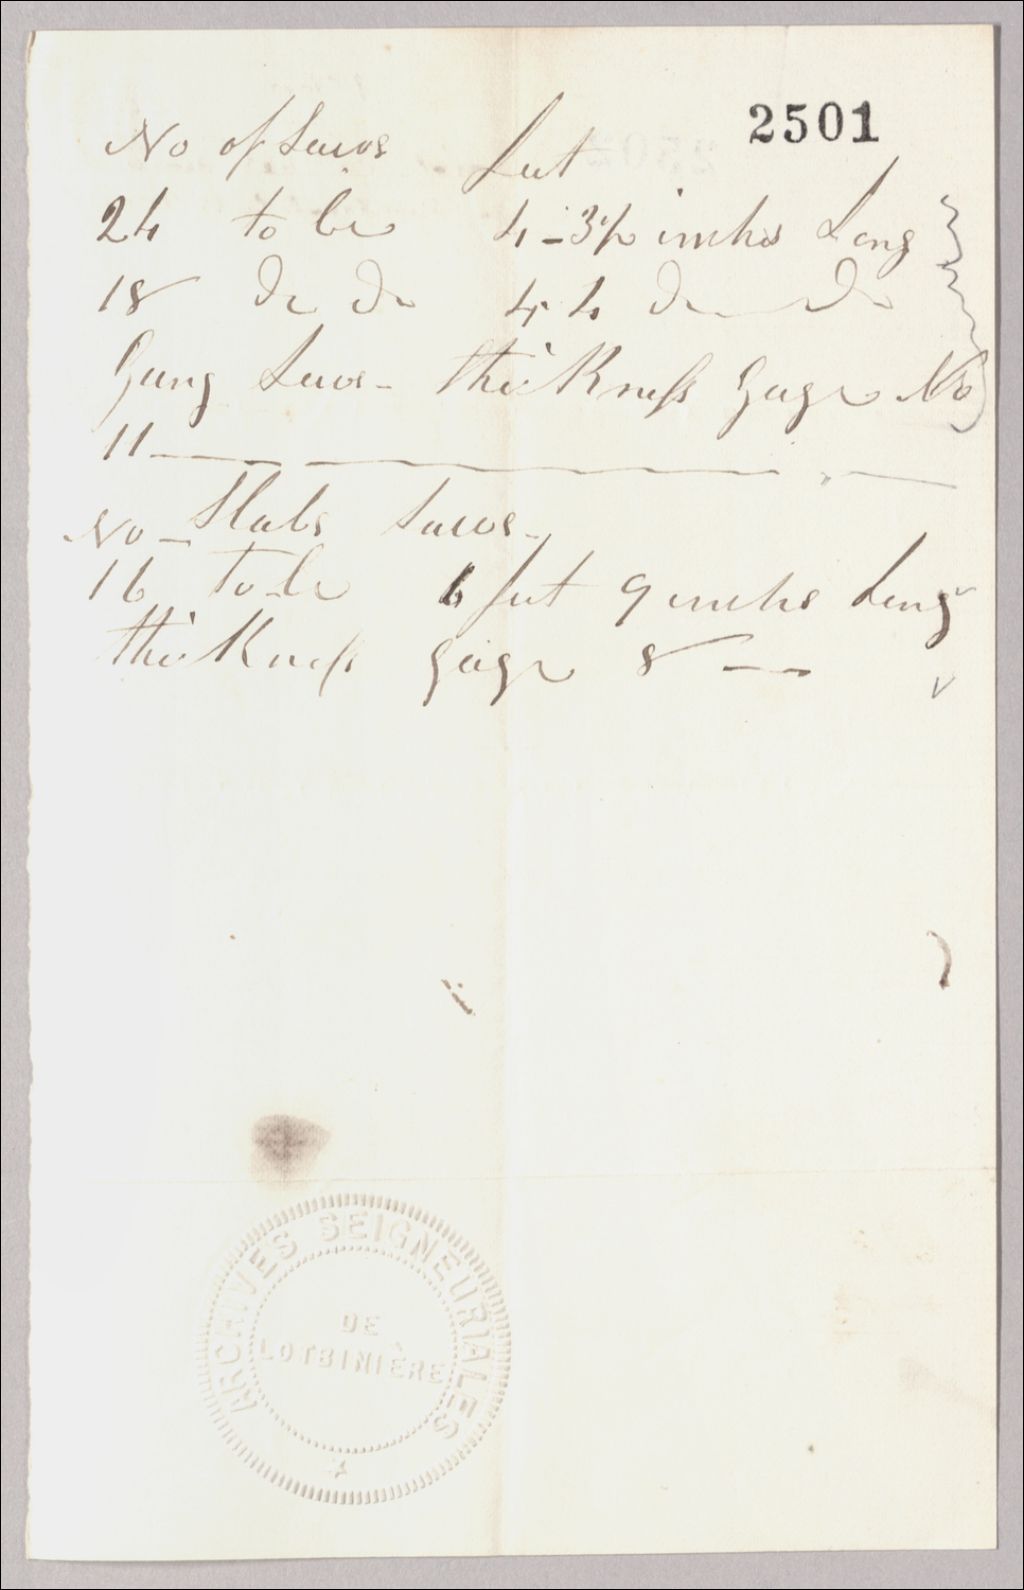 2501
No of Saws feet
24 to be 4-3½ inches Long
18 Do Do 4 4 Do Do
Gang Saws - thickness Gage No
11
No - Slabs Saws -
16 to be 6 feet 9 inches Long
thickness gage 8 -
ARCHIVES SEIGNEURIALES
DE
LOTBINIÈRE